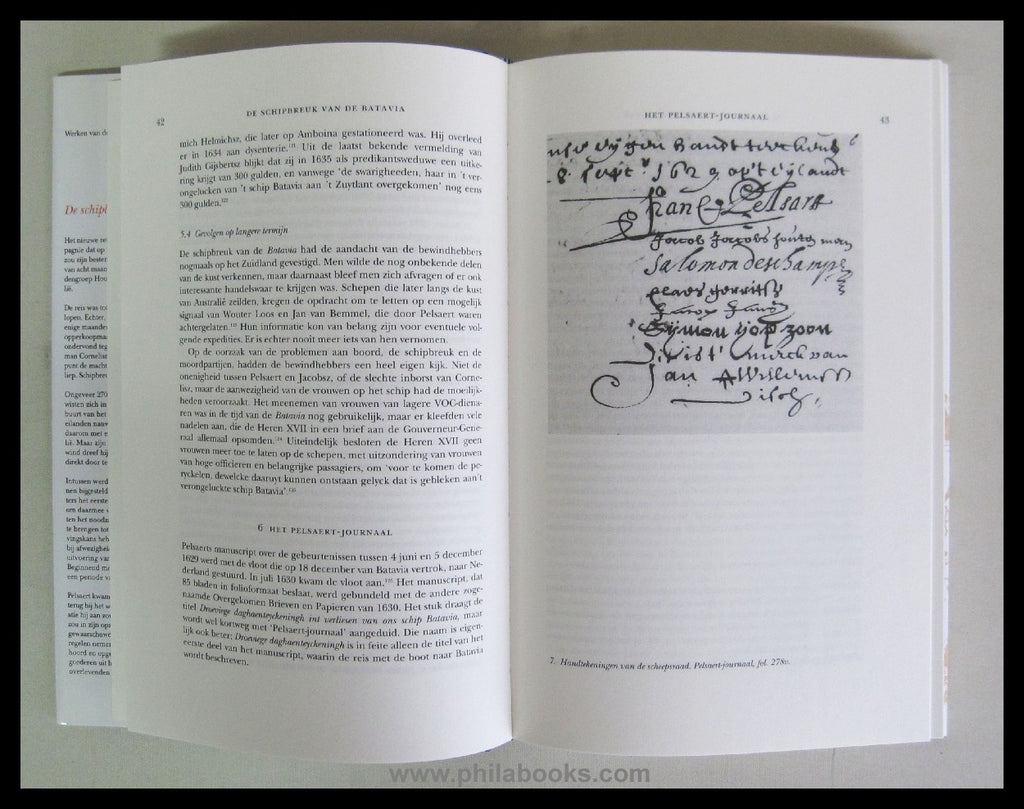 Werken van d
De schip
Het nieuwe re
pagnie dat op
zou zijn bester
van acht maan
dengroep Hou
lië.
De reis was to
lopen. Echter,
enige maande
opperkoopma
ondervond teg
man Cornelis
punt de macht
liep. Schipbre
Ongeveer 270
wisten zich in
buurt van het
eilanden nauw
daarom met e
lië. Maar zijn
wind dreef hij
direkt door te
Intussen werd
nen bijgesteld
ters het eerste
om daarmee v
ten het noodz
te brengen tot
vingskans heb
bij afwezighei
uitvoering var
Beginnend me
een periode v
Pelsaert kwam
terug bij het w
atie hij aan zo
zou in zijn op
gewaarschuwe
regelen nemer
boord en opge
goederen uit h
overlevenden
42
DE SCHIPBREUK VAN DE BATAVIA
mich Helmichsz, die later op Amboina gestationeerd was. Hij overleed
er in 1634 aan dysenterie. Uit de laatst bekende vermelding van
Judith Gijsbertsz blijkt dat zij in 1635 als predikantsweduwe een uitke-
ring krijgt van 300 gulden, en vanwege 'de swarigheeden, haar in 't ver-
ongelucken van 't schip Batavia aan 't Zuytlant overgekomen' nog eens
300 gulden.
5.4 Gevolgen op langere termijn
De schipbreuk van de Batavia had de aandacht van de bewindhebbers
nogmaals op het Zuidland gevestigd. Men wilde de nog onbekende delen
van de kust verkennen, maar daarnaast bleef men zich afvragen of er ook
interessante handelswaar te krijgen was. Schepen die later langs de kust
van Australië zeilden, kregen de opdracht om te letten op een mogelijk
signaal van Wouter Loos en Jan van Bemmel, die door Pelsaert waren
achtergelaten. Hun informatie kon van belang zijn voor eventuele vol-
gende expedities. Er is echter nooit meer iets van hen vernomen.
Op de oorzaak van de problemen aan boord, de schipbreuk en de
moordpartijen, hadden de bewindhebbers een heel eigen kijk. Niet de
onenigheid tussen Pelsaert en Jacobsz, of de slechte inborst van Corne-
lisz, maar de aanwezigheid van de vrouwen op het schip had de moeilijk-
heden veroorzaakt. Het meenemen van vrouwen van lagere VOC-diena-
ren was in de tijd van de Batavia nog gebruikelijk, maar er kleefden vele
nadelen aan, die de Heren XVII in een brief aan de Gouverneur-Gene-
raal allemaal opsomden. Uiteindelijk besloten de Heren XVII geen
vrouwen meer toe te laten op de schepen, met uitzondering van vrouwen
van hoge officieren en belangrijke passagiers, om 'voor te komen de pe-
ryckelen, dewelcke daaruyt kunnen ontstaan gelyck dat is gebleken aan't
verongeluckte schip Batavia'.
6 HET PELSAERT-JOURNAAL
Pelsaerts manuscript over de gebeurtenissen tussen 4 juni en 5 december
1629 werd met de vloot die op 18 december van Batavia vertrok, naar Ne-
derland gestuurd. In juli 1630 kwam de vloot aan. Het manuscript, dat
85 bladen in folioformaat beslaat, werd gebundeld met de andere zoge-
naamde Overgekomen Brieven en Papieren van 1630. Het stuk draagt de
titel Droevige daghaenteyckeningh int verliesen van ons schip Batavia, maar
wordt wel kortweg met 'Pelsaert-journaal' aangeduid. Die naam is eigen-
lijk ook beter; Droevige daghaenteyckeningh is in feite alleen de titel van het
eerste deel van het manuscript, waarin de reis met de boot naar Batavia
wordt beschreven.
HET PELSAERT-JOURNAAL
43
1629 op't eijlandt
Pelsart
Jacob Jacobs houten man
Salomon deschamps
claes gerritsz
Sijmon yop zoon
Dit is t' merck van
Jan Willemsz
7. Handtekeningen van de scheepsraad. Pelsaert-journaal, fol. 278v.
www.philabooks.com